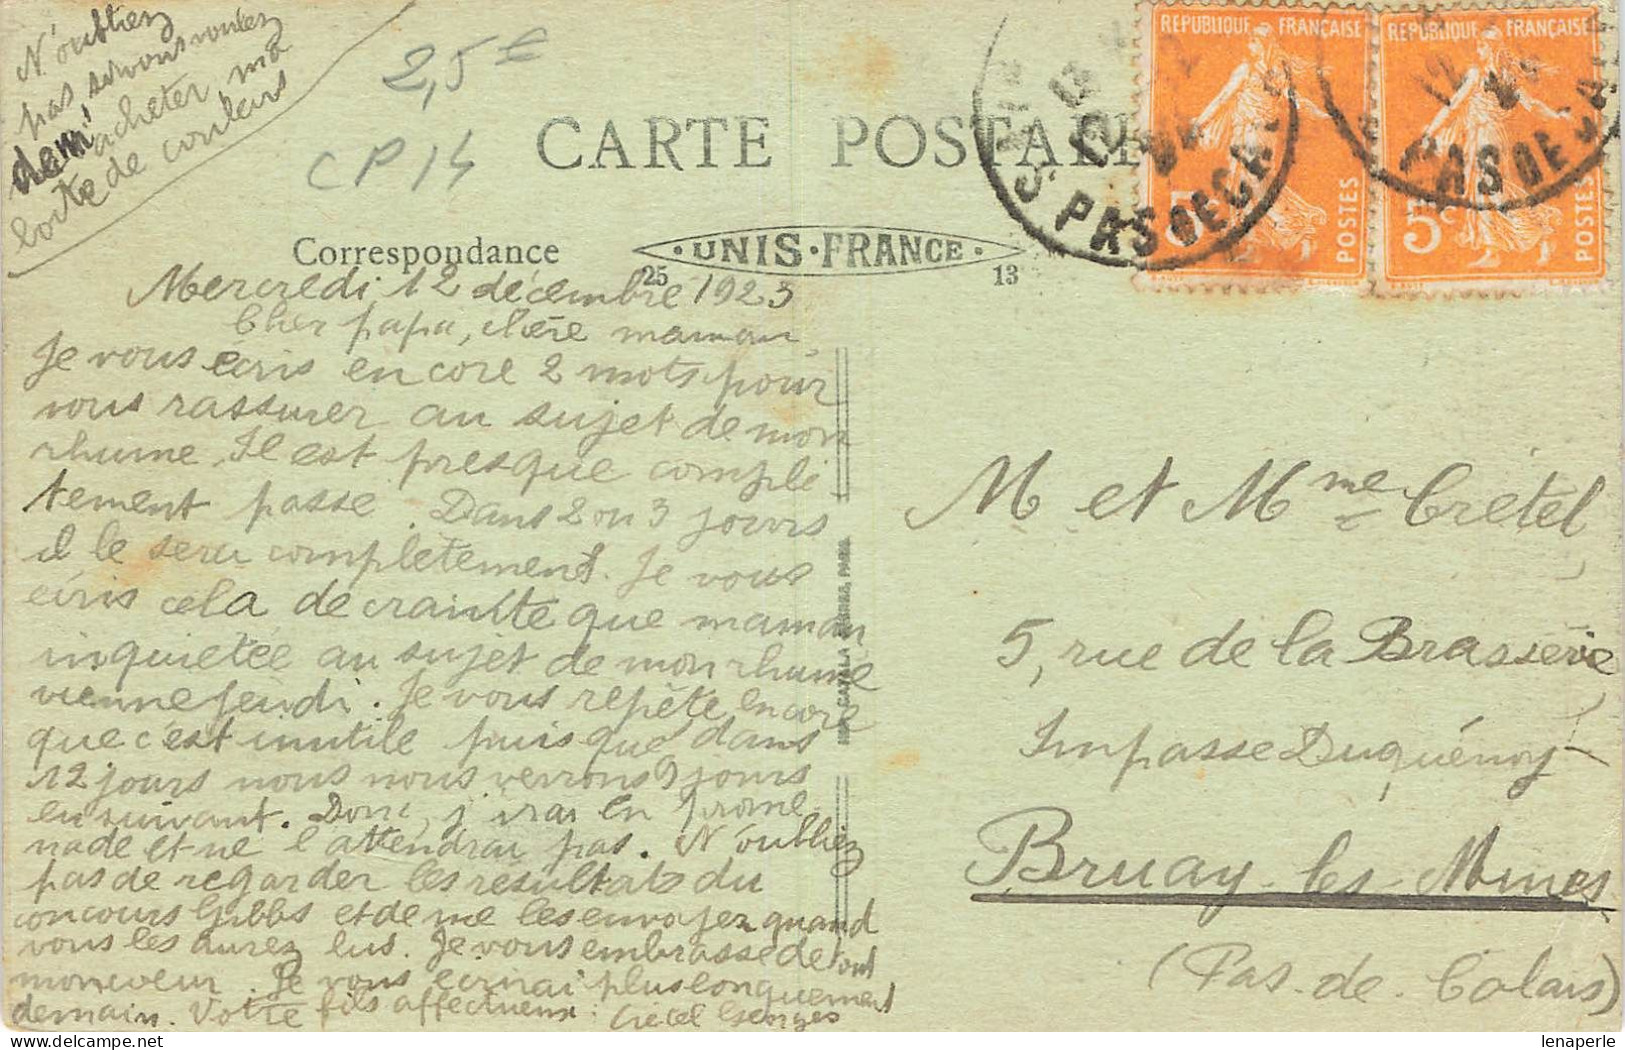 N'oubliez
pas si vous voulez
dem' acheter ma
boîte de couleurs
2,5 €
CP 14
CARTE POSTALE
Correspondance
·UNIS·FRANCE·
25
13
REPUBLIQUE FRANÇAISE
5c
POSTES
REPUBLIQUE FRANÇAISE
5c
POSTES
PAS DE CALAIS
PAS DE CALAIS
Mercredi 12 décembre 1923
Cher papa, chère maman,
Je vous écris encore 2 mots pour
vous rassurer au sujet de mon
rhume. Il est presque complè
tement passe. Dans 2 ou 3 jours
il le sera complètement. Je vous
écris cela de crainte que maman,
inquietée au sujet de mon rhume
vienne jeudi. Je vous repète encore
que c'est inutile puisque dans
12 jours nous nous verrons 9 jours
en suivant. Donc, j'irai en prome
nade et ne l'attendrai pas. N'oubliez
pas de regarder les résultats du
concours Gibbs et de me les envoyer quand
vous les aurez lus. Je vous embrasse de tout
mon cœur. Je vous écrirai plus longuement
demain. Votre fils affectueux : Crétel Georges
M et Mme Crétel
5, rue de la Brasserie
Impasse Duquénoy
Bruay-les-Mines
(Pas-de-Calais)
lenaperle